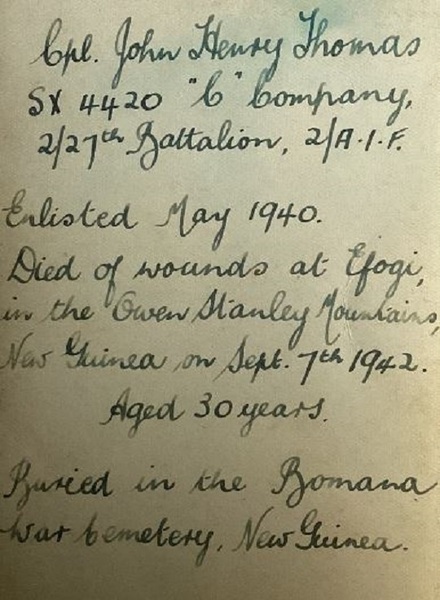 Cpl. John Henry Thomas
SX 4420 "C" Company,
2/27th Battalion, 2/A.I.F.
Enlisted May 1940.
Died of wounds at Efogi,
in the Owen Stanley Mountains,
New Guinea on Sept. 7th 1942.
Aged 30 years.
Buried in the Bomana
War Cemetery, New Guinea.